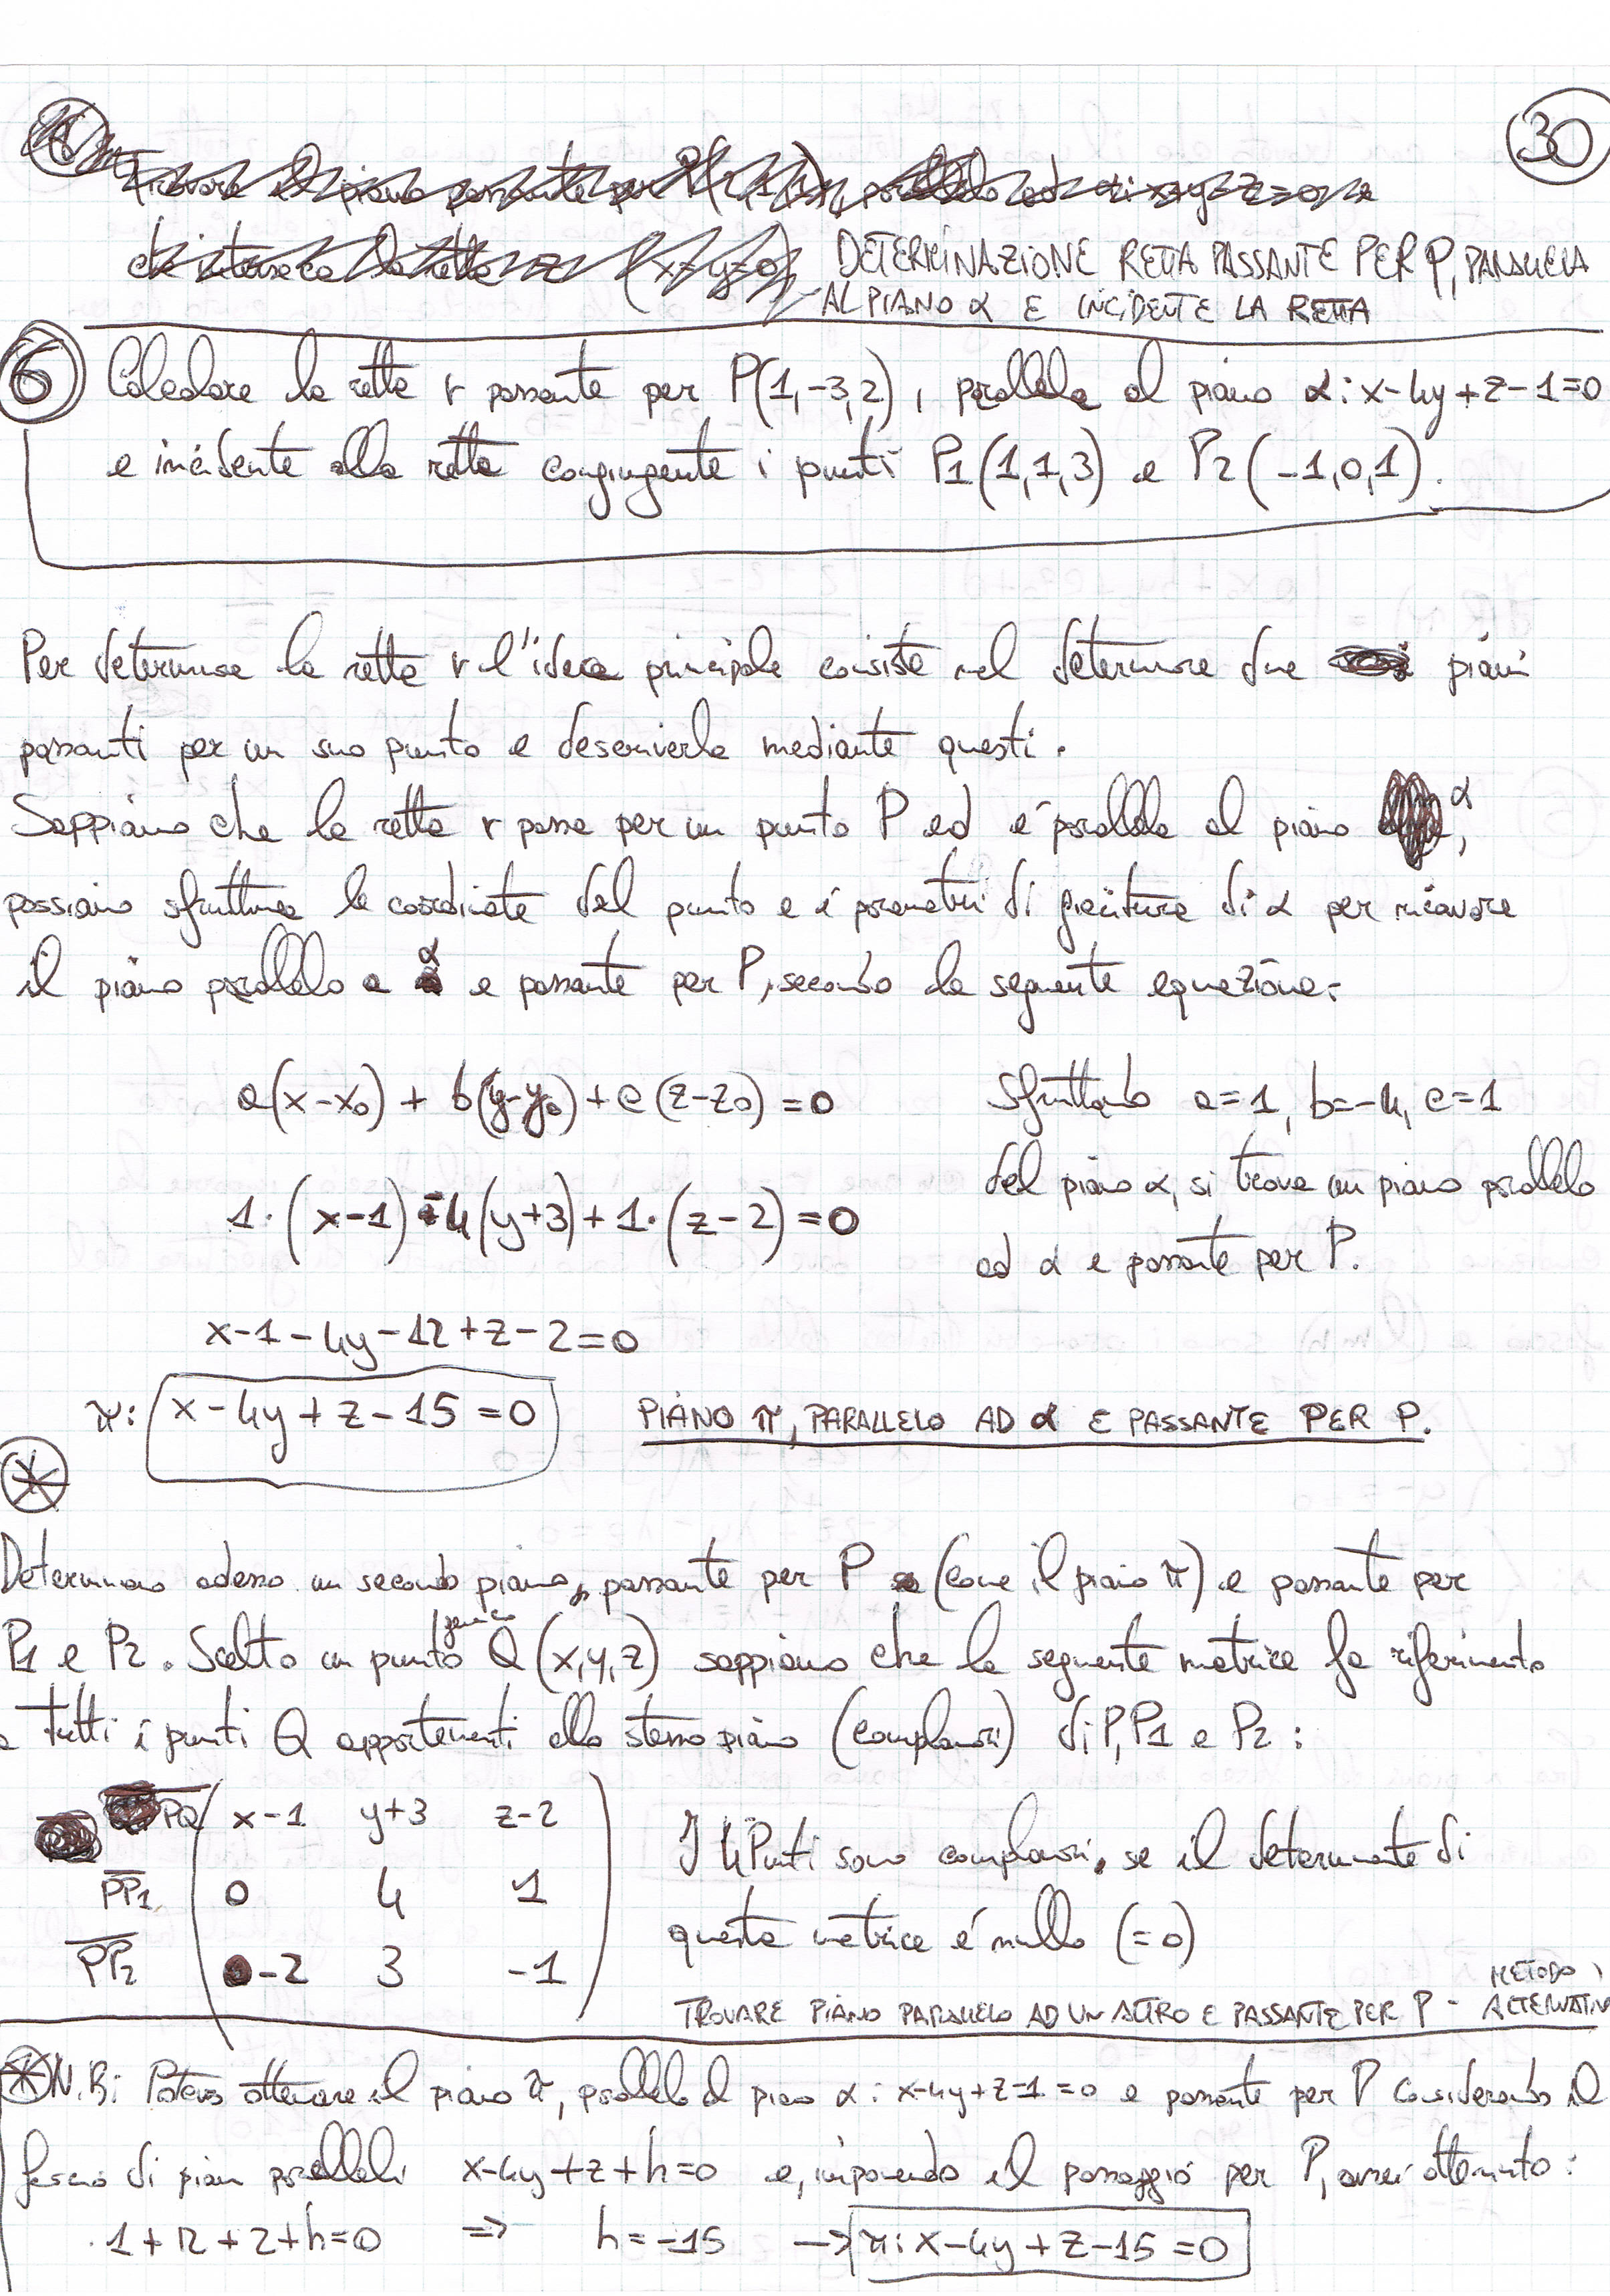 30
Trovare il piano passante per P(1,1,1), parallelo ad α: x+y-z=0 e
che interseca la retta
DETERMINAZIONE RETTA PASSANTE PER P, PARALLELA
AL PIANO α E INCIDENTE LA RETTA
6 Calcolare la retta r passante per P(1,-3,2), parallela al piano α: x-4y+z-1=0
e incidente alla retta congiungente i punti P1(1,1,3) e P2(-1,0,1).
Per determinare la retta r l'idea principale consiste nel determinare due piani
passanti per un suo punto e descriverla mediante questi.
Sappiamo che la retta r passa per un punto P ed é parallela al piano α,
possiamo sfruttare le coordinate del punto e i parametri di giacitura di α per ricavare
il piano parallelo a α e passante per P, secondo la seguente equazione:
a(x-x0) + b(y-y0) + c(z-z0) = 0
Sfruttando a=1, b=-4, c=1
del piano α, si trova un piano parallelo
ad α e passante per P.
1·(x-1)-4(y+3)+1·(z-2)=0
x-1-4y-12+z-2=0
π: x-4y+z-15=0
PIANO π, PARALLELO AD α E PASSANTE PER P.
Determiniamo adesso un secondo piano, passante per P (come il piano π) e passante per
P1 e P2. Scelto un punto generico Q(x,y,z) sappiamo che la seguente matrice fa riferimento
a tutti i punti Q appartenenti allo stesso piano (complanari) di P, P1 e P2:
PQ x-1 y+3 z-2
PP1 0 4 1
PP2 -2 3 -1
I 4 Punti sono complanari, se il determinante di
questa matrice é nullo (=0)
TROVARE PIANO PARALLELO AD UN ALTRO E PASSANTE PER P - METODO ALTERNATIV
* N.B: Potevo ottenere il piano π, parallelo al piano α: x-4y+z-1=0 e passante per P considerando il
fascio di piani paralleli x-4y+z+h=0 e, imponendo il passaggio per P, avrei ottenuto:
1+12+2+h=0 => h=-15 → π: x-4y+z-15=0